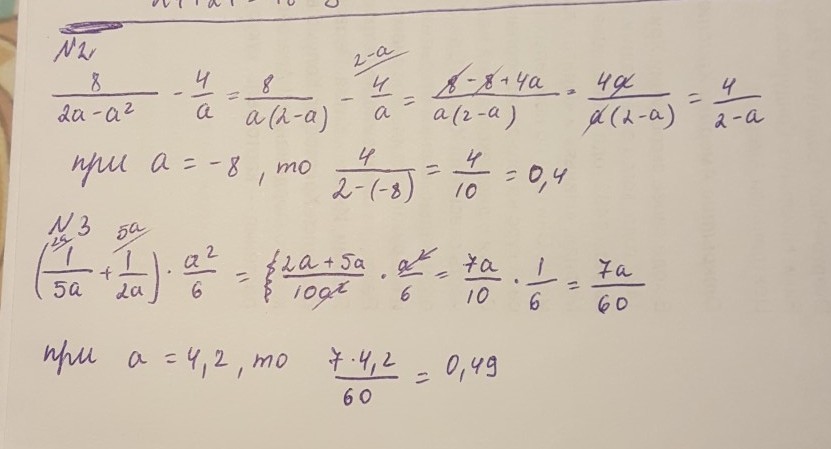 N2
8/(2a-a²) - 4/a = 8/(a(2-a)) - 4/a (2-a) = (8-8+4a)/(a(2-a)) = 4a/(a(2-a)) = 4/(2-a)
при a = -8, то 4/(2-(-8)) = 4/10 = 0,4
N3
(1/5a (2a) + 1/2a (5a)) · a²/6 = (2a+5a)/10a² · a²/6 = 7a/10 · 1/6 = 7a/60
при a = 4,2, то (7·4,2)/60 = 0,49